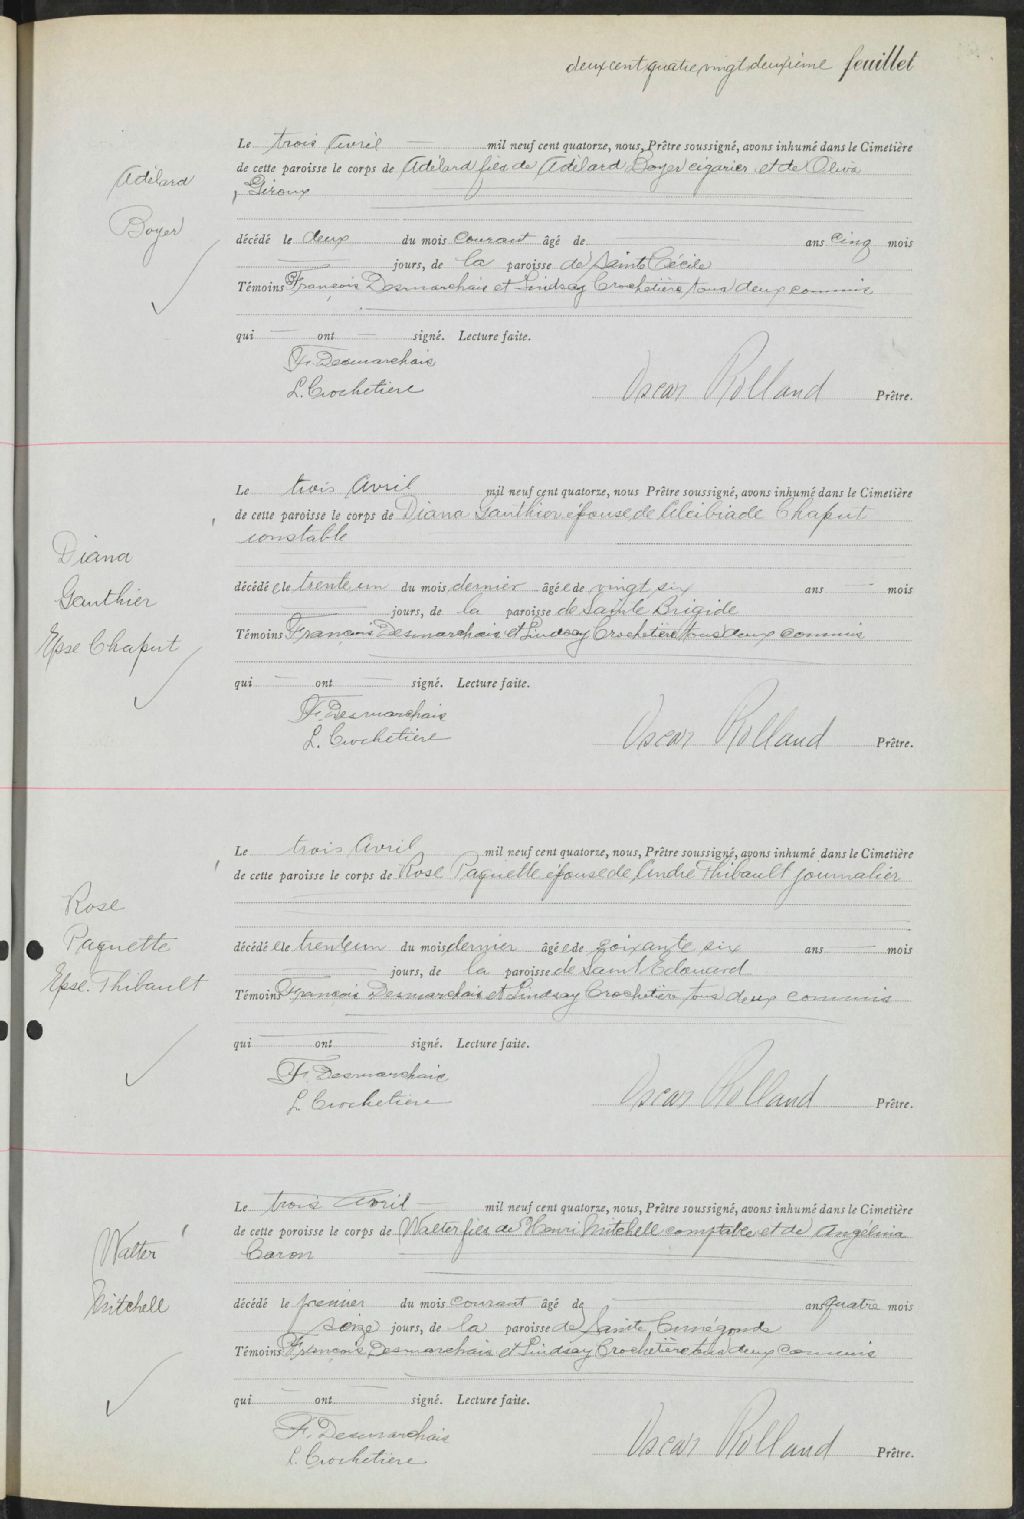 deux cent quatre vingt deuxième feuillet
Adélard
Boyer
Le trois Avril mil neuf cent quatorze, nous, Prêtre soussigné, avons inhumé dans le Cimetière
de cette paroisse le corps de Adélard fils de Adélard Boyer cigarier et de Oliva
Giroux
décédé le deux du mois courant âgé de ans cinq mois
jours, de la paroisse de Sainte Cécile
Témoins François Desmarchais et Lindsay Crochetière tous deux commis
qui ont signé. Lecture faite.
F. Desmarchais
L. Crochetiere
Oscar Rolland Prêtre.
Diana
Gauthier
Epse Chaput
Le trois Avril mil neuf cent quatorze, nous Prêtre soussigné, avons inhumé dans le Cimetière
de cette paroisse le corps de Diana Gauthier épouse de Alcibiade Chaput
constable
décédée le trente un du mois dernier âgée de vingt six ans mois
jours, de la paroisse de Sainte Brigide
Témoins François Desmarchais et Lindsay Crochetière tous deux commis
qui ont signé. Lecture faite.
F. Desmarchais
L. Crochetiere
Oscar Rolland Prêtre.
Rose
Paquette
Epse. Thibault
Le trois Avril mil neuf cent quatorze, nous, Prêtre soussigné, avons inhumé dans le Cimetière
de cette paroisse le corps de Rose Paquette épouse de André Thibault journalier
décédée le trente un du mois dernier âgée de soixante six ans mois
jours, de la paroisse de Saint Edouard
Témoins François Desmarchais et Lindsay Crochetière tous deux commis
qui ont signé. Lecture faite.
F. Desmarchais
L. Crochetiere
Oscar Rolland Prêtre.
Walter
Mitchell
Le trois Avril mil neuf cent quatorze, nous, Prêtre soussigné, avons inhumé dans le Cimetière
de cette poroisse le corps de Walter fils de Henri Mitchell comptable et de Angélina
Caron
décédé le premier du mois courant âgé de ans quatre mois
seize jours, de la paroisse de Sainte Cunégonde
Témoins François Desmarchais et Lindsay Crochetière tous deux commis
qui ont signé. Lecture faite.
F. Desmarchais
L. Crochetiere
Oscar Rolland Prêtre.